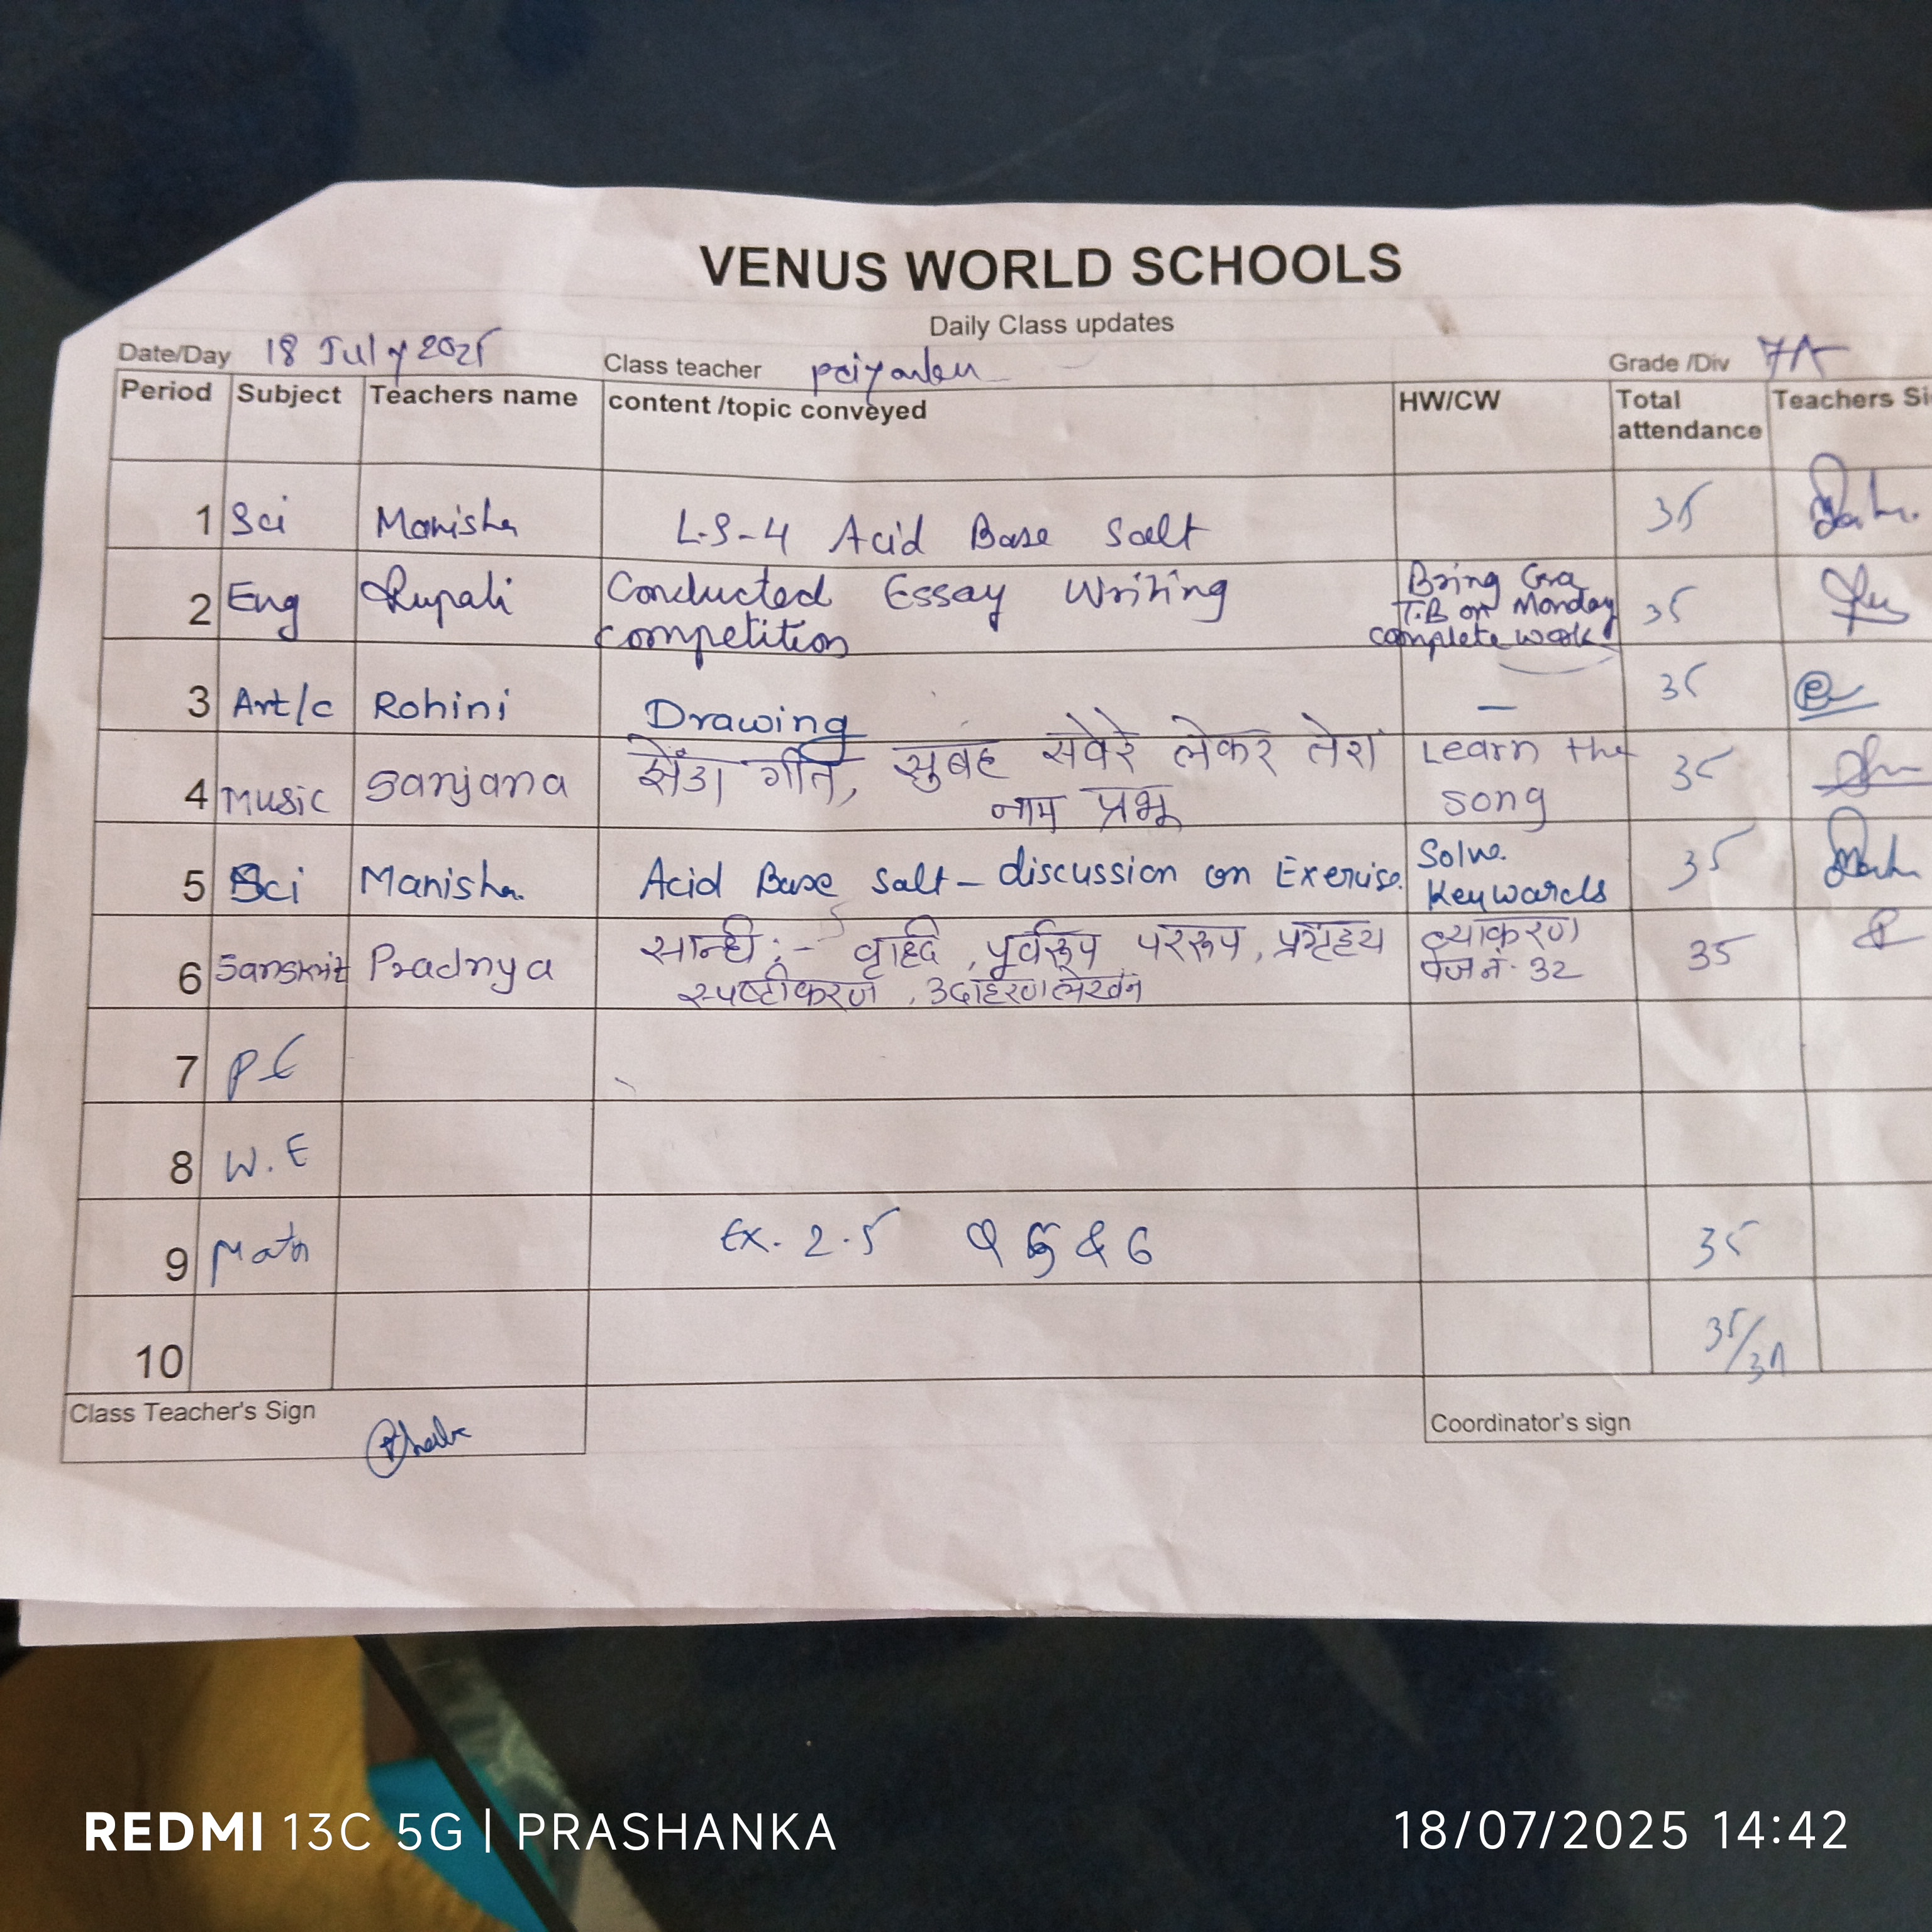 VENUS WORLD SCHOOLS
Daily Class updates
Date/Day 18 July 2025 Class teacher Grade /Div 7A
Period Subject Teachers name content /topic conveyed HW/CW Total attendance Teachers Si
1 Sci Manisha L.S-4 Acid Base Salt 35
2 Eng Rupali Conducted Essay Writing Bring Gra 35
competition T.B on Monday
complete work
3 Art/c Rohini Drawing — 35
4 Music Sanjana झेंडा गीत, सुबह सवेरे लेकर तेरा Learn the 35
नाम प्रभू song
5 Sci Manisha Acid Base Salt - discussion on Exercise. Solve 35
Keywords
6 Sanskrit Pradnya सन्धी :- वृद्धि, पूर्वरूप पररूप, व्याकरण 35
स्पष्टीकरण, उदाहरण लेखन पेज नं. 32
7 P E
8 W. E
9 Math Ex. 2.5 Q 5 & 6 35
10 35/
Class Teacher's Sign
Coordinator's sign
REDMI 13C 5G | PRASHANKA
18/07/2025 14:42